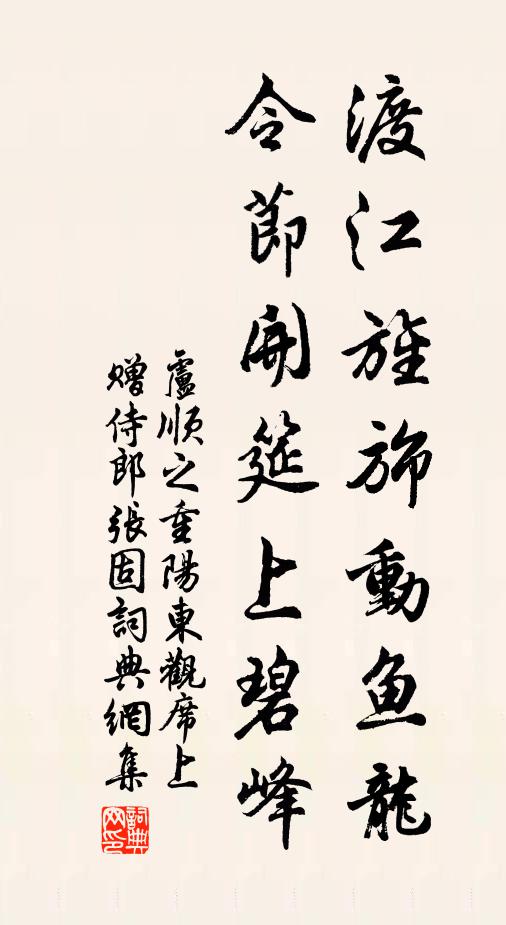 渡江旌旆動鱼龍
令節開筵上碧峰
盧順之重陽東觀席上
贈侍郎張固詞典網集
詞典
网印